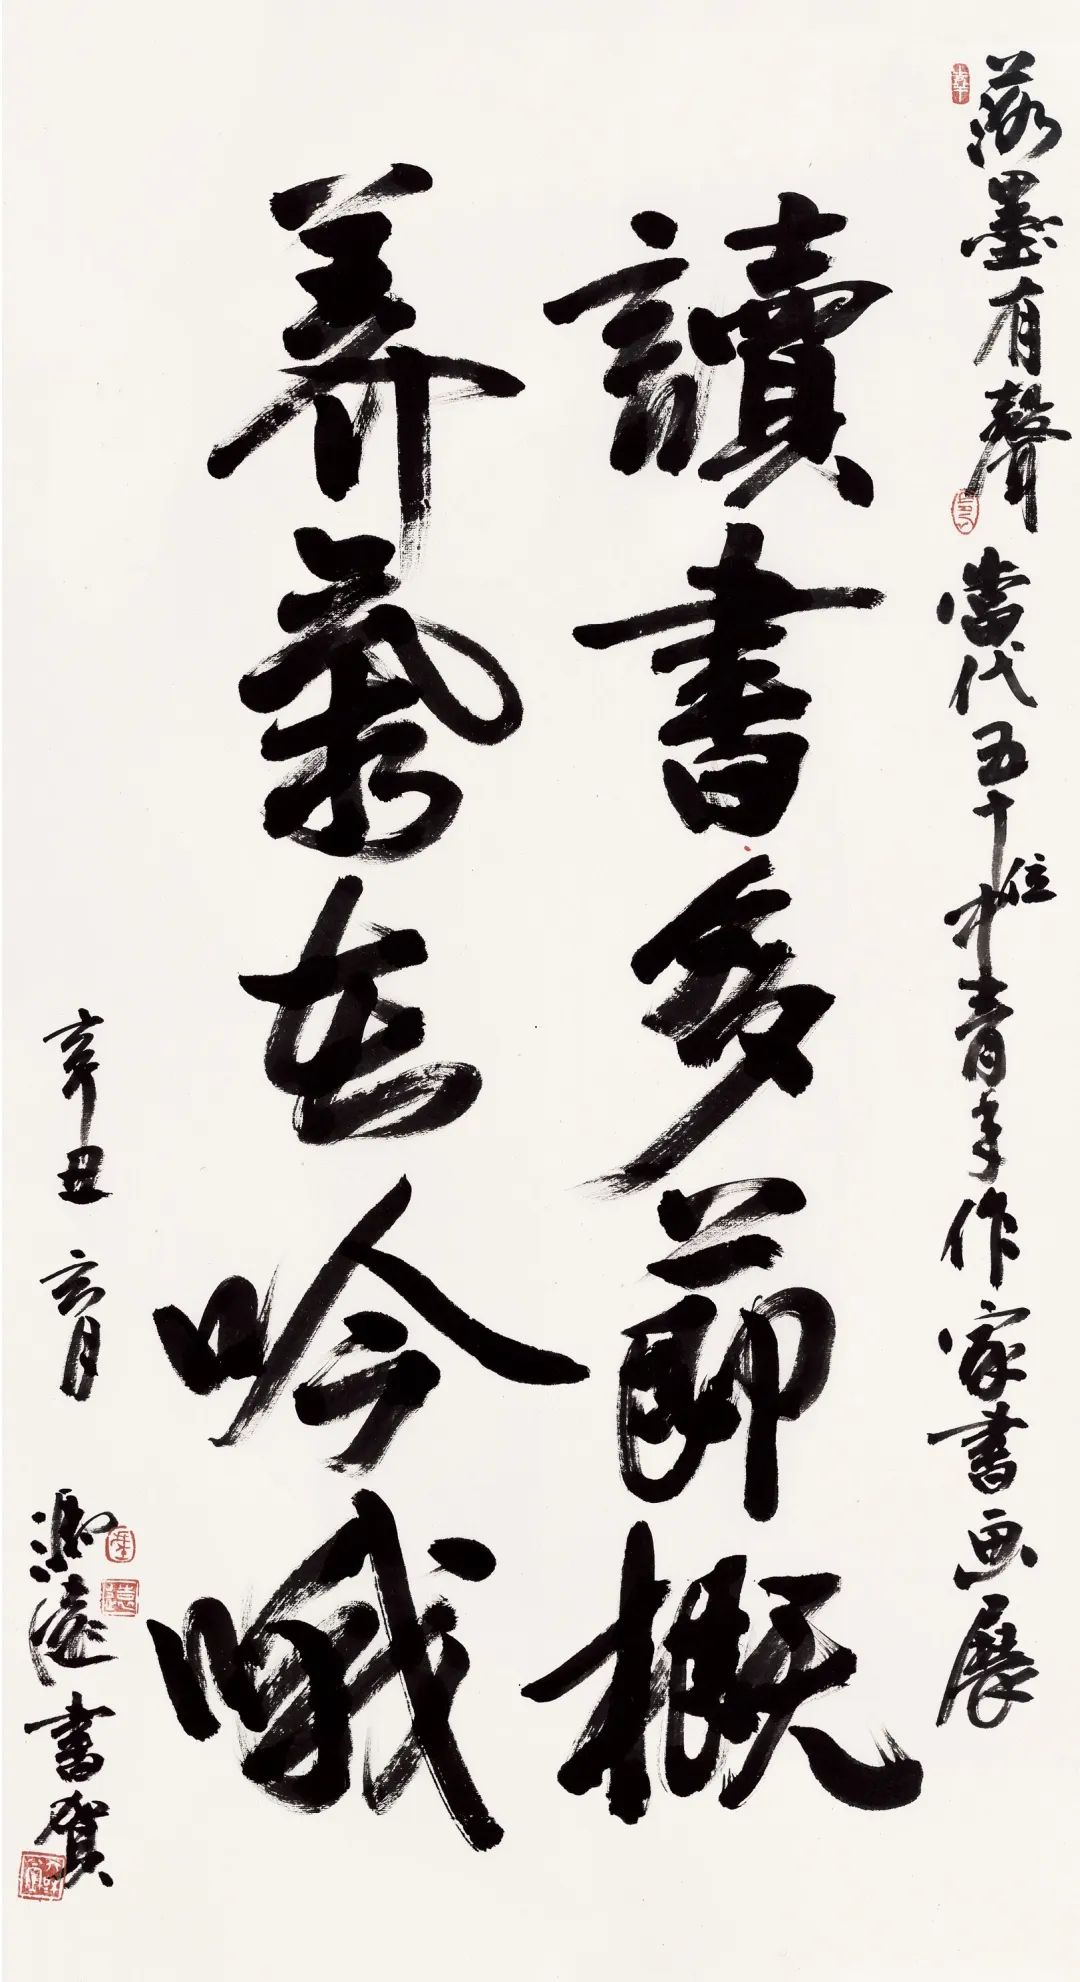 落墨有聲 當代五十位中青年作家書画展
讀書多節概
养氣在吟哦
辛丑 月 遠書賀